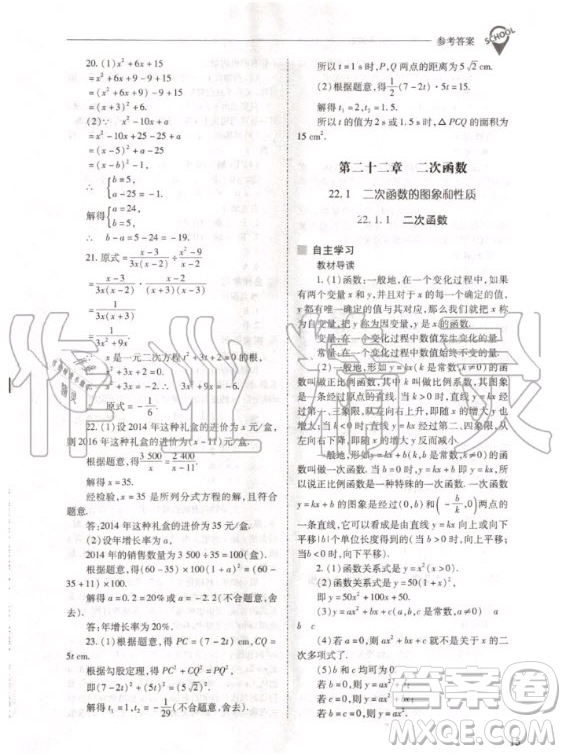 参考答案
SCHOOL
20. (1)x²+6x+15
=x²+6x+9-9+15
=(x²+6x+9)-9+15
=(x+3)²+6.
(2)∵ x²-10x+a
=x²-10x+25-25+a
=(x-5)²+a-25
=(x-b)²-1
∴ {b=5, a-25=-1.
解得{b=5, a=24.
∴ b-a=5-24=-19.
21. 原式=(x-3)/(3x(x-2))÷(x²-9)/(x-2)
=(x-3)/(3x(x-2))·
=
∵ x是一元二次方程x²+3x+2=0的根,
∴ x²+3x=-2.
∴ 原式=-1/6.
22. (1)设2014年这种礼盒的进价为x元/盒,
则2016年这种礼盒的进价为(x-11)元/盒.
根据题意,得3 500/x=2 400/(x-11).
解得x=35.
经检验,x=35是所列分式方程的解,且符合
题意.
答:2014年这种礼盒的进价为35元/盒.
(2)设年增长率为a,
2014年的销售数量为3 500÷35=100(盒).
根据题意,得(60-35)×100(1+a)²=(60-
35+11)×100.
解得a=0.2=20%或a=-2.2(不合题意,舍
去).
答:年增长率为20%.
23. (1)根据题意,得PC=(7-2t)cm,CQ=
5t cm.
根据勾股定理,得PC²+CQ²=PQ²,
即(7-2t)²+(5t)²=(5√2)².
解得t₁=1,t₂=-1/29(不合题意,舍去).
所以t=1s时,P,Q两点的距离为5√2 cm.
(2)根据题意,得1/2(7-2t)·5t=15.
解得t₁=2,t₂=1.5.
所以t的值为2s或1.5s时,△PCQ的面积为
15 cm².
第二十二章 二次函数
22.1 二次函数的图象和性质
22.1.1 二次函数
自主学习
教材导读
1. (1)函数:一般地,在一个变化过程中,如果
有两个变量x和y,并且对于x的每一个确定的值,
y都有唯一确定的值与其对应,那么我们就说x为
自变量,把y称为因变量,y是x的函数.
变量:在一个变化过程中数值发生变化的量.
常量:在一个变化过程中数值始终不变的量.
(2)一般地,形如y=kx(k是常数,k≠0)的函
数叫做正比例函数,其中k叫做比例系数,其图象
是一条经过原点的直线.当k>0时,直线y=kx经
过第一、三象限,从左向右上升,即随x的增大y也
增大;当k<0时,直线y=kx经过第二、四象限,从
左向右下降,即随x的增大y反而减小.
一般地,形如y=kx+b(k,b是常数,k≠0)的
函数叫做一次函数,当b=0时,y=kx+b即y=kx,所
以说正比例函数是一种特殊的一次函数.一次函数
y=kx+b的图象是过(0,b)和(-b/k,0)两点的
一条直线,它可以看成是由直线y=kx向上或向下
平移|b|个单位长度得到的(当b>0时,向上平移;
当b<0时,向下平移).
2. (1)函数关系式是y=6x²(x>0).
(2)函数关系式是y=50(1+x)².
(3)y=ax²+bx+c(a,b,c是常数,a≠0) a
b c
(4)如果a=0,y=ax²+bx+c就不是关于x的二
次多项式了.
(5)b和c均可为0.
若b=0,则y=ax²+c
若c=0,则y=ax²+
若b=c=0,则y=ax²
作业精灵
作业帮
MXQE.COM